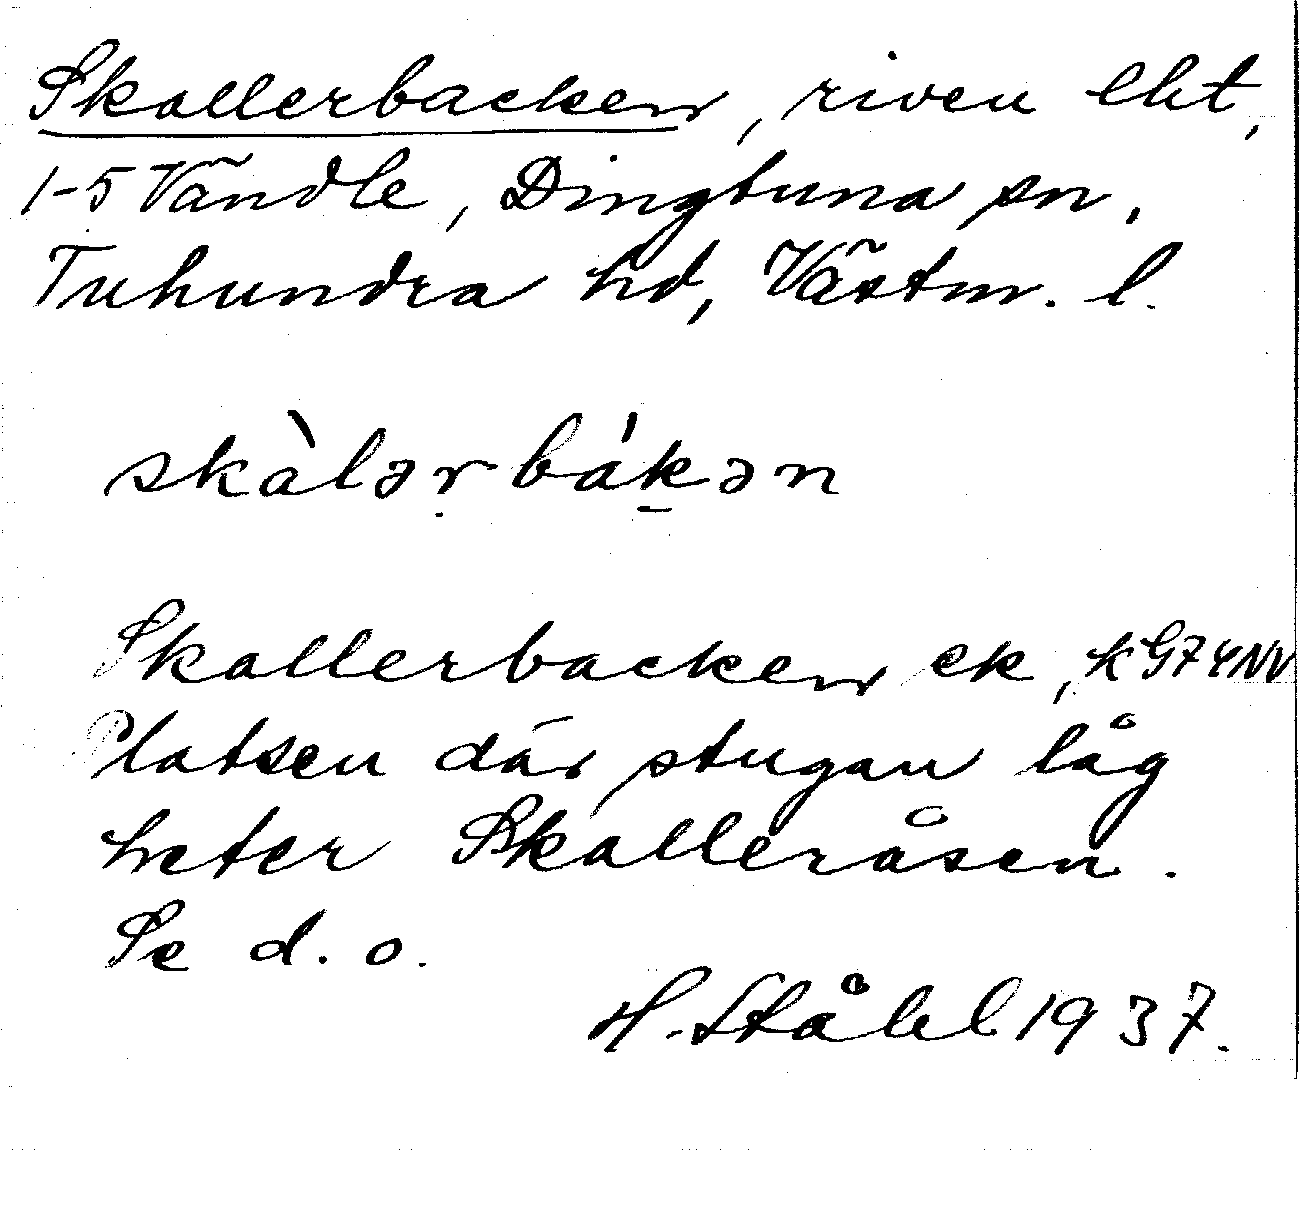 Skallerbacken, riven lht,
1-5 Vändle, Dingtuna sn,
Tuhundra hd, Västm. l.
skàlər̩bák̲ən
Skallerbacken ek, k G7 4NV
Platsen där stugan låg
heter Skalleråsen.
Se d. o.
H. Ståhl 1937.